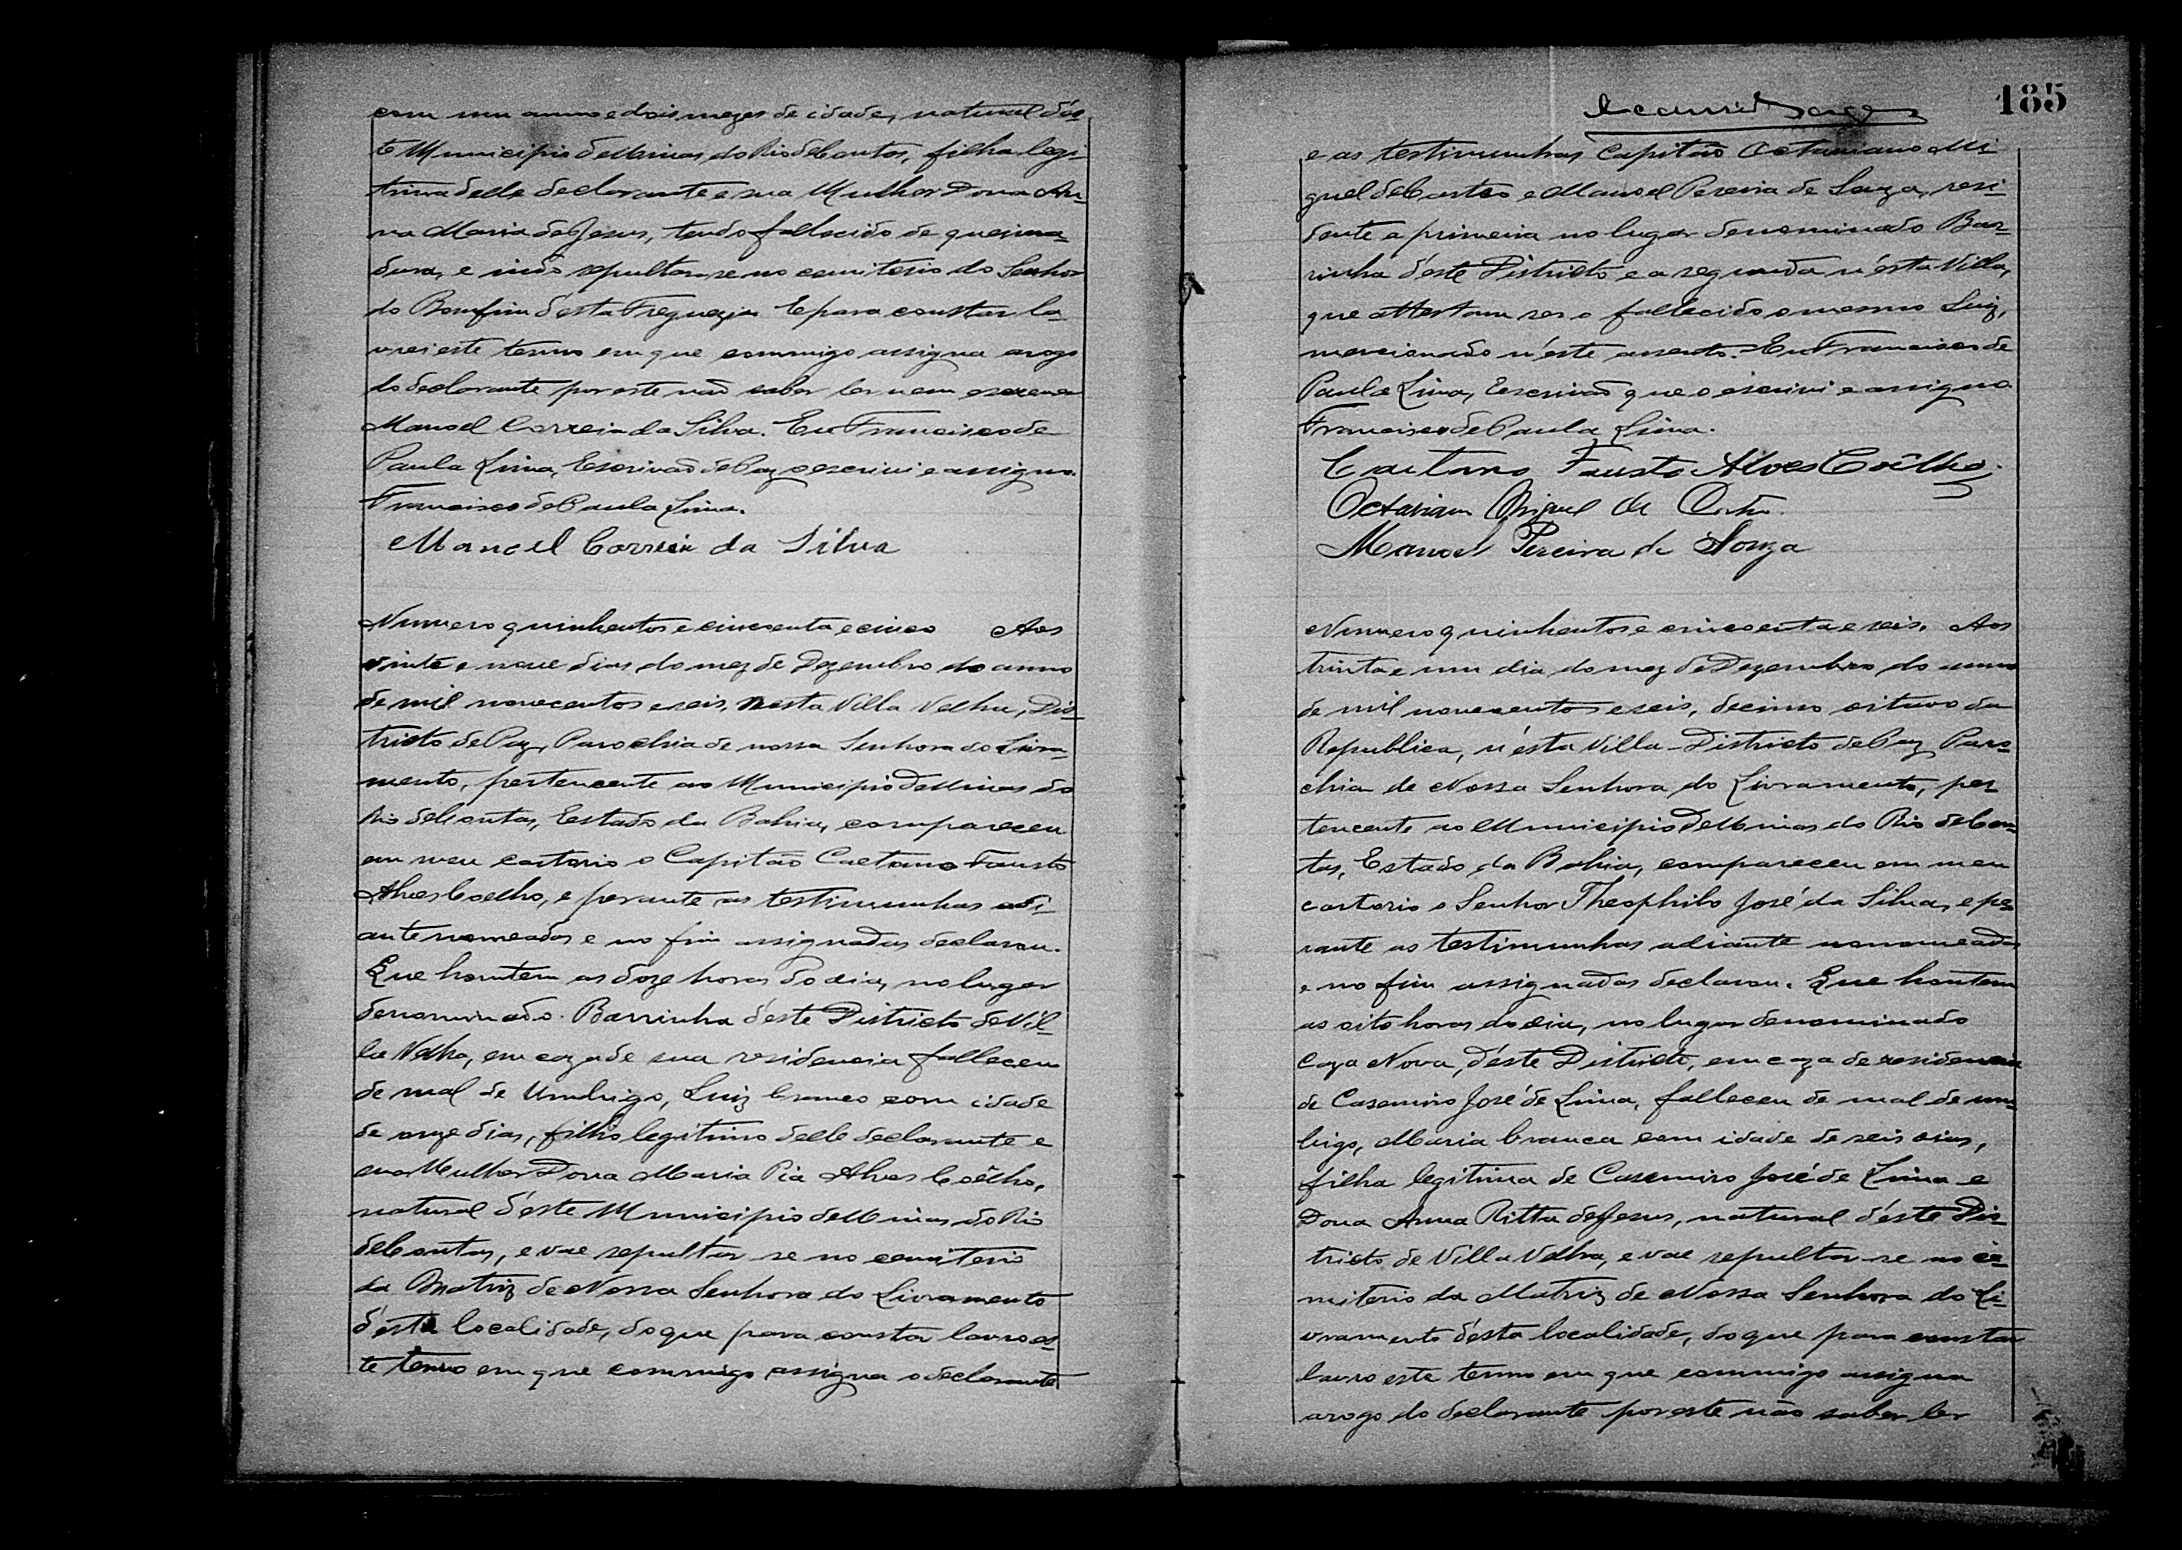 com um anno e dois mezes de idade, natural d'és-
te Municipio de Minas do Rio de Contas, filha legi-
tima delle declarante e sua Mulher Dona An-
na Maria de Jesus, tendo fallecido de queima-
dura, e indo sepultar-se no cemiterio do Senhor
do Bomfim d'ésta Freguezia E para constar la-
vrei este termo em que commigo assigna arogo
do declarante por este não saber ler nem escrever
Manoel Correia da Silva. Eu Francisco de
Paula Lima, Escrivão de Paz o escrivi e assigno.
Francisco de Paula Lima.
Manoel Correia da Silva
Numero quinhentos e cincoenta e cinco Aos
vinte e nove dias do mez de Dezembro do anno
de mil novecentos e seis, nesta Villa Velha, Dis-
tricto de Paz, Parochia de nossa Senhora do Livra-
mento, pertencente ao Municipio de Minas do
Rio de Contas, Estado da Bahia, compareceu
em meu cartorio o Capitão Caetano Fausto
Alves Coelho, e perante as testimunhas adi-
ante nomeadas e no fim assignadas declarou.
Que hontem as doze horas do dia, no lugar
denominado Barrinha d'éste Districto de Vil-
la Velha, em caza de sua residencia falleceu
de mal de Umbigo, Luiz branco com idade
de onze dias, filho legitimo delle declarante e
sua Mulher Dona Maria Pia Alves Coêlho,
natural d'éste Municipio de Minas do Rio
de Contas, e vae sepultar-se no cemiterio
da Matriz de Nossa Senhora do Livramento
d'ésta localidade, do que para constar lavro es-
te termo em que commigo assigna o declarante
185
e as testimunhas Capitão Octaviano Mi-
guel de Castro e Manoel Pereira de Souza, resi-
dente a primeira no lugar denominado Bar-
rinha d'éste Districto e a segunda n'ésta Villa,
que attestam ser o fallecido o mesmo Luiz,
mencionado n'éste assento. Eu Francisco de
Paula Lima, Escrivão que o escrivi e assigno
Francisco de Paula Lima.
Caetano Fausto Alves Coêlho
Octaviano Miguel de Castro.
Manoel Pereira de Souza
Numero quinhentos e cincoenta e seis. Aos
trinta e um dia do mez de Dezembro do anno
de mil novecentos e seis, decimo oitavo da
Republica, n'ésta Villa Districto de Paz, Paro-
chia de Nossa Senhora do Livramento, per-
tencente ao Municipio de Minas do Rio de Con-
tas, Estado da Bahia, compareceu em meu
cartorio o Senhor Theophilo José da Silva, e pe-
rante as testimunhas adiante nomeadas
e no fim assignadas declarou. Que hontem
as oito horas do dia, no lugar denominado
Caza Nova, d'éste Districto, em caza de residencia
de Casemiro José de Lima, falleceu de mal de um-
bigo, Maria branca com idade de seis dias,
filha legitima de Casemiro José de Lima e
Dona Anna Ritta de Jesus, natural d'éste Dis-
tricto de Villa Velha, e vae sepultar-se no ce-
miterio da Matriz de Nossa Senhora do Li-
vramento d'ésta localidade, do que para constar
lavro este termo em que commigo assigna
arogo do declarante por este não saber ler